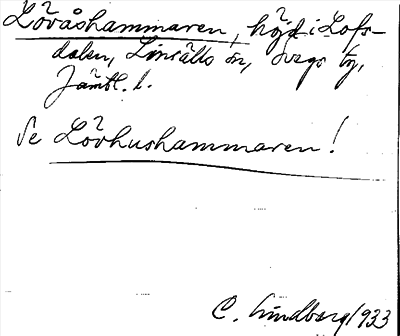 Lövåshammaren, höjd i Lofs-
dalen, Linsälls sn, Svegs tg,
Jämtl. l.
Se Lövhushammaren!
C. Lindberg 1933